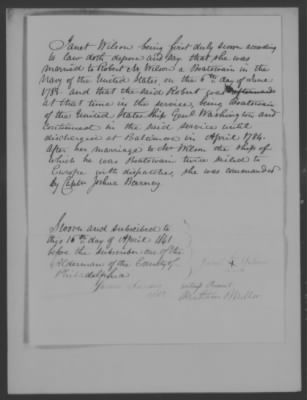 Janet Wilson being first duly sworn according
to law doth depose and say that she was
married to Robert M. Wilson a Boatswain in the
Navy of the United States, on the 6th day of June
178 and that the said Robert was
at that time in the service, being Boatswain
of the United States Ship Genl Washington and
continued in the said service until
discharged at Baltimore in April 1784.
After her marriage to Mr Wilson the ship of
which he was Boatswain twice sailed to
Europe with dispatches, she was commanded
by Captn Joshua Barney
Sworn and subscribed to
this 16th day of April 1841
before the subscriber one of the
Aldermen of the County of
Philadelphia